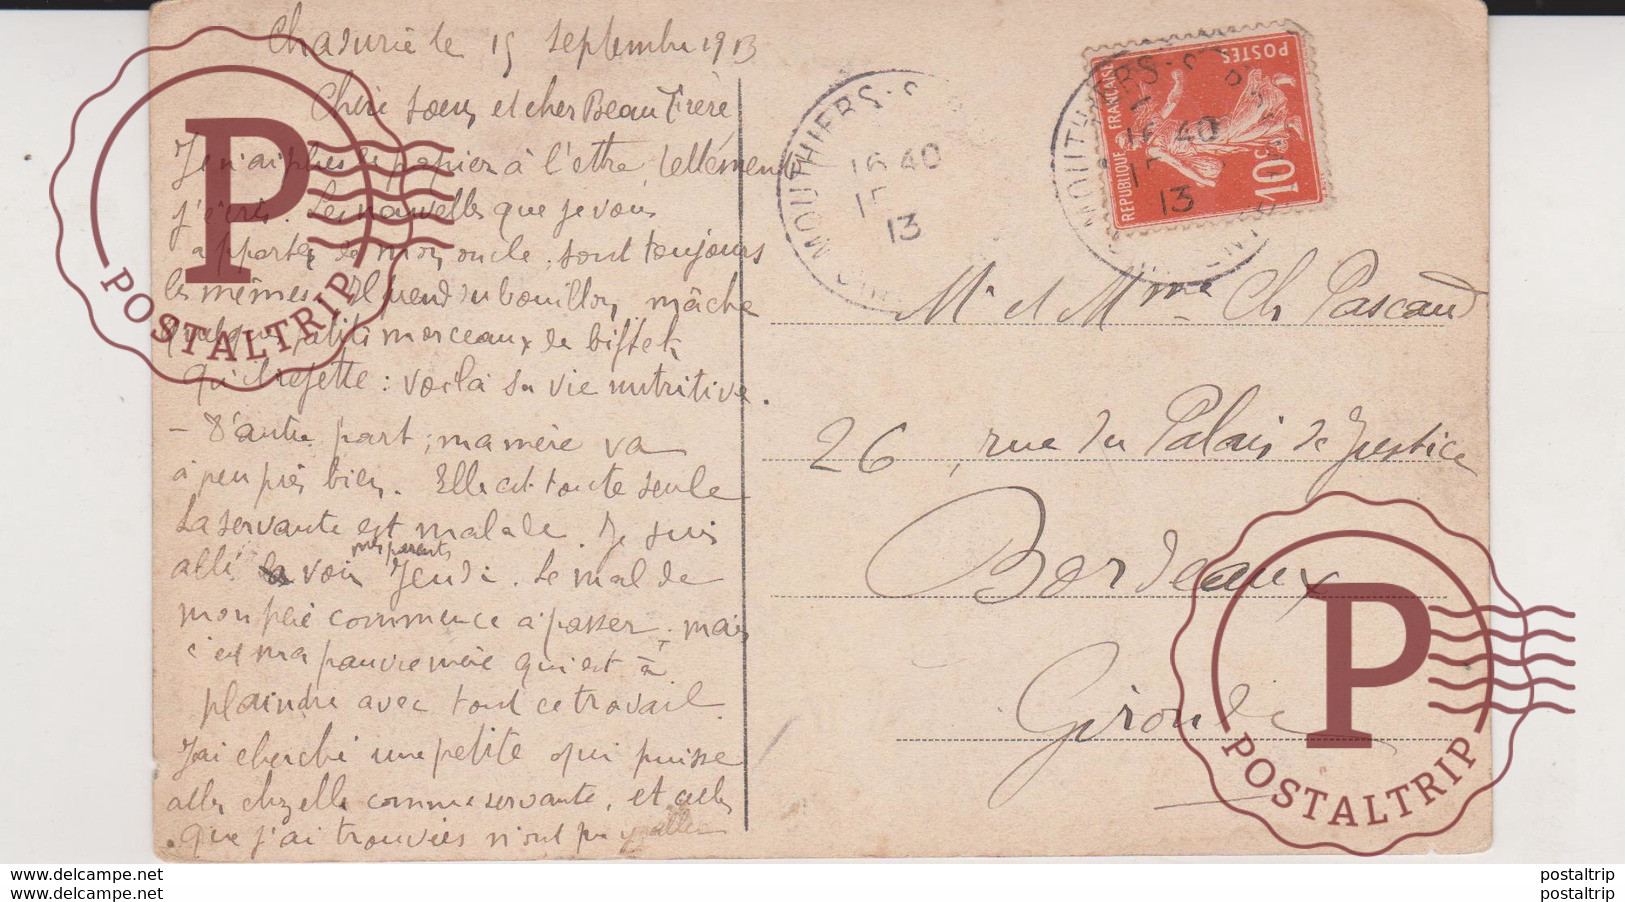 Chadurie le 15 septembre 1913
Chère Soeur et cher Beau Frère
Je n'ai plus de papier à lettre, tellement
j'écris. Les nouvelles que je vous
apporte de mon oncle, sont toujours
les mêmes. Il prend du bouillon, mâche
quelques petits morceaux de biftek
qu'il rejette : voilà sa vie nutritive.
– D'autre part, ma mère va
à peu près bien. Elle est toute seule
La servante est malade. Je suis
allé voir mes parents Jeudi. Le mal de
mon père commence à passer, mais
c'est ma pauvre mère qui est à
plaindre avec tout ce travail.
J'ai cherché une petite qui puisse
aller chez elle comme servante, et celles
que j'ai trouvées n'ont pu y aller
MOUTHIERS-S
16 40
15
13
MOUTHIERS-S
16 40
15
13
REPUBLIQUE FRANÇAISE
POSTES
10c
Mr et Mme Ch Pascaud
26, rue du Palais de Justice
Bordeaux
Gironde
P
POSTALTRIP
P
POSTALTRIP
www.delcampe.net
www.delcampe.net
postaltrip
postaltrip